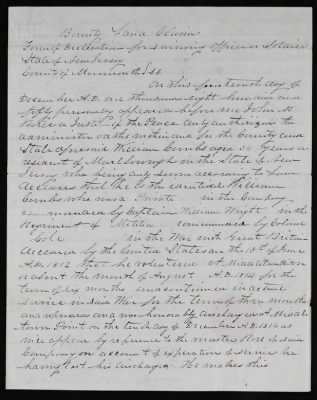 Bounty Land Claim
Form of Declaration for surviving Officer or Soldier
State of New Jersey
County of Monmouth } SS.
On this fourteenth day of
December A.D. one thousand eight hundred and
fifty personally appeared before me John M
a Justice of the Peace duly authorized to
administer oaths within and for the County and
State aforesaid William Combs aged 54 Years a
resident of Marlborough in the State of New
Jersey who being duly sworn according to Law
declares that he is the identical William
Combs who was a Private in the Company
commanded by Captain William Wright in the
Regiment of Militia commanded by Colonel
Cole in the War with Great Britain
declared by the United States on the 18th of June
A.D. 1812 that he volunteered at Middletown
on about the month of August A.D. 1814 for the
term of six months and continued in actual
service in said War for the term of three months
and was honorably discharged at Middle
town Point on the tenth day of December A.D. 1814 as
will appear by reference to the muster Roll of said
Company on account of expiration of service he
having lost his discharge He makes this